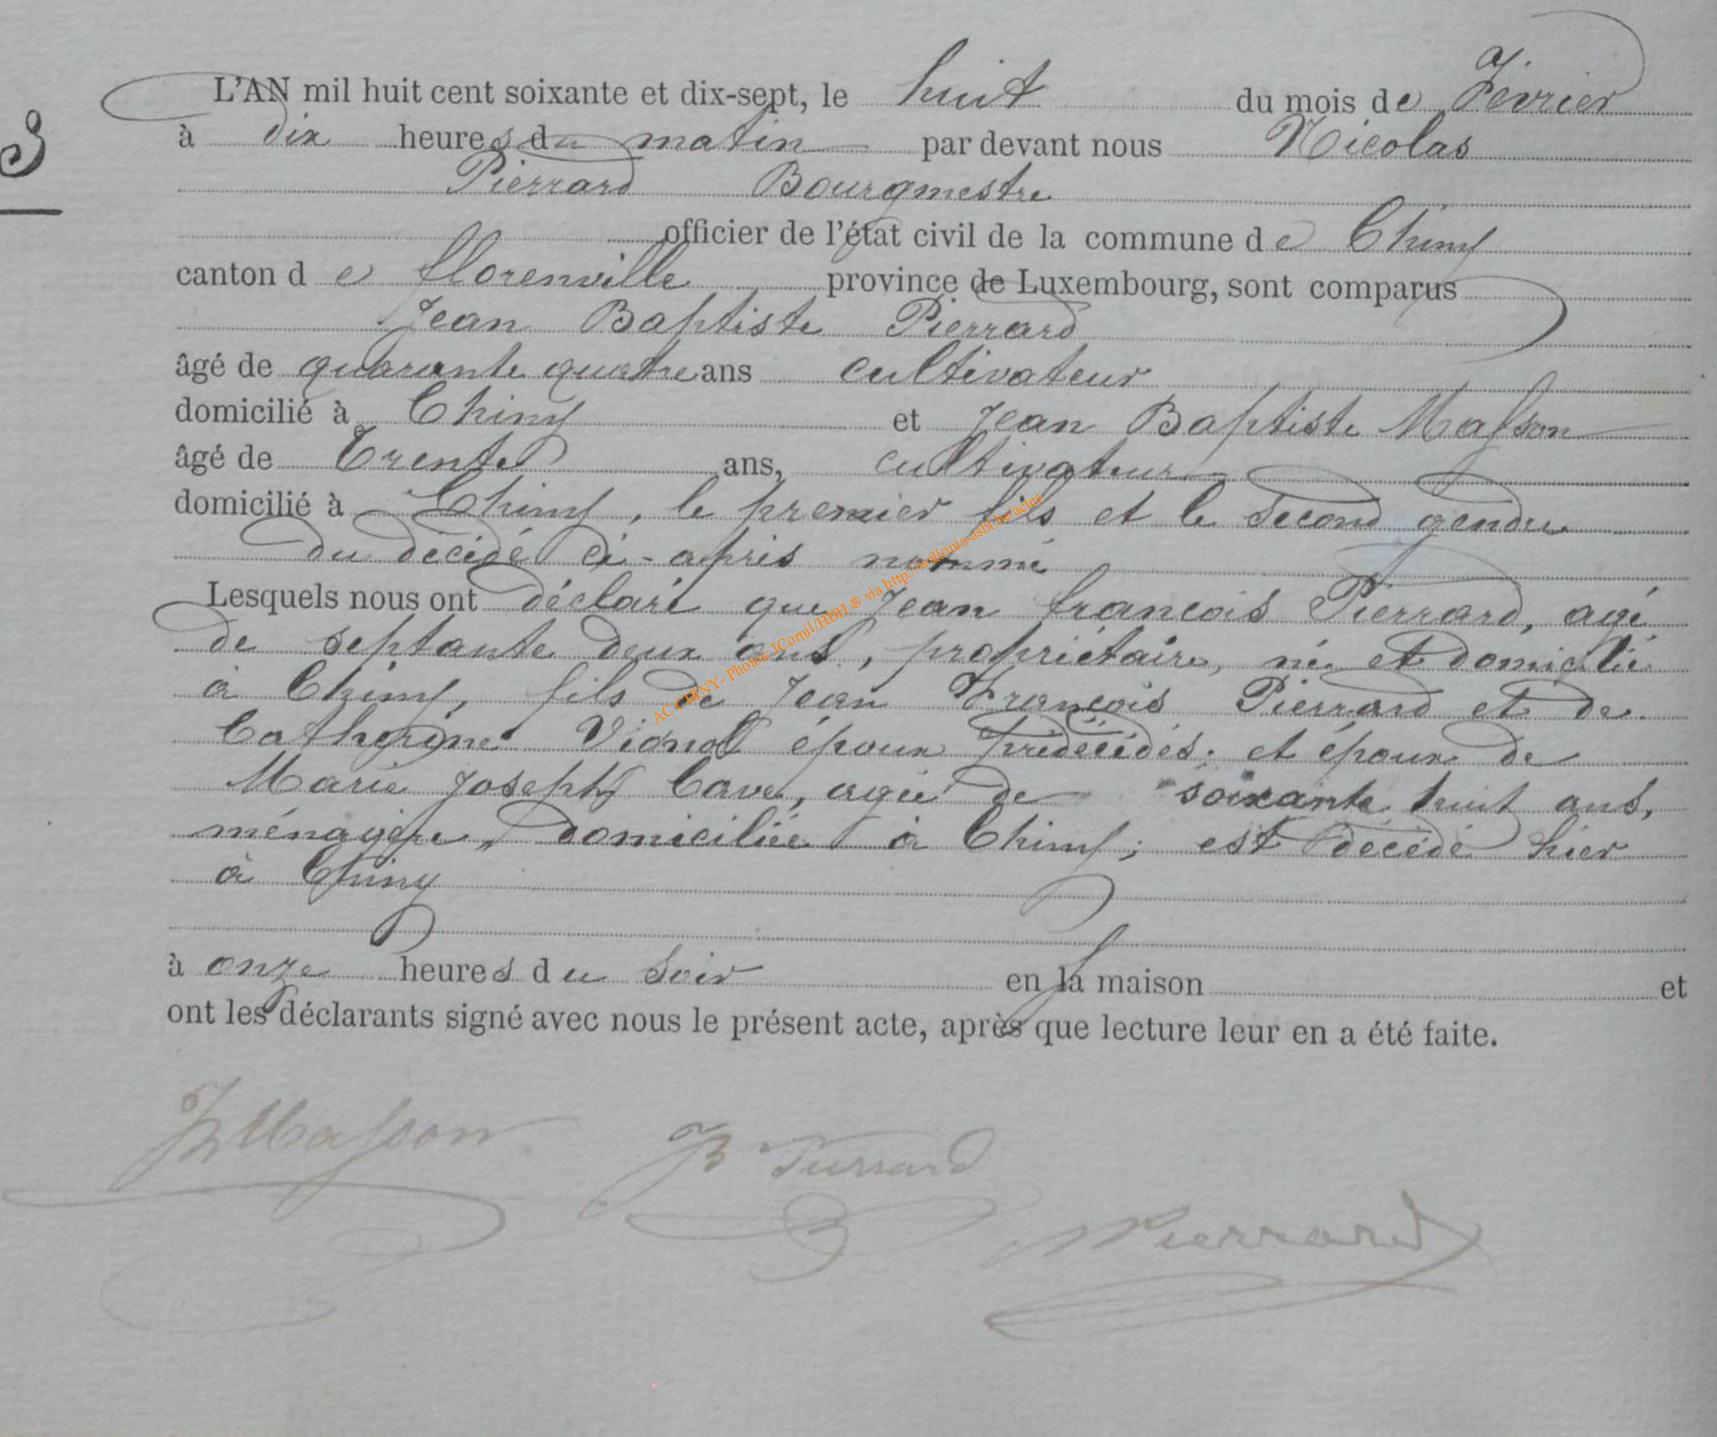 L'AN mil huit cent soixante et dix-sept, le huit du mois de Février
3
à dix heures du matin par devant nous Nicolas
Pierrard Bourgmestre
officier de l'état civil de la commune de Chiny
canton de florenville province de Luxembourg, sont comparus
Jean Baptiste Pierrard
âgé de quarante quatre ans cultivateur
domicilié à Chiny et Jean Baptiste Masson
âgé de Trente ans, cultivateur
domicilié à Chiny, le premier fils et le second gendre
du décédé ci-après nommé
Lesquels nous ont déclaré que Jean françois Pierrard, agé
de septante deux ans, propriétaire, né et domicilié
à Chiny, fils de Jean François Pierrard et de
Catherine Vignol époux prédécédés; et époux de
Marie Joseph Cave, agée de soixante huit ans,
ménagère, domiciliée à Chiny; est décédé hier
à Chiny
à onze heures du soir en sa maison et
ont les déclarants signé avec nous le présent acte, après que lecture leur en a été faite.
JB Masson JB Pierrard
NPierrard
AC CHINY - Photos JComil/HBH ® via http://wallonia-asbl.be/actes